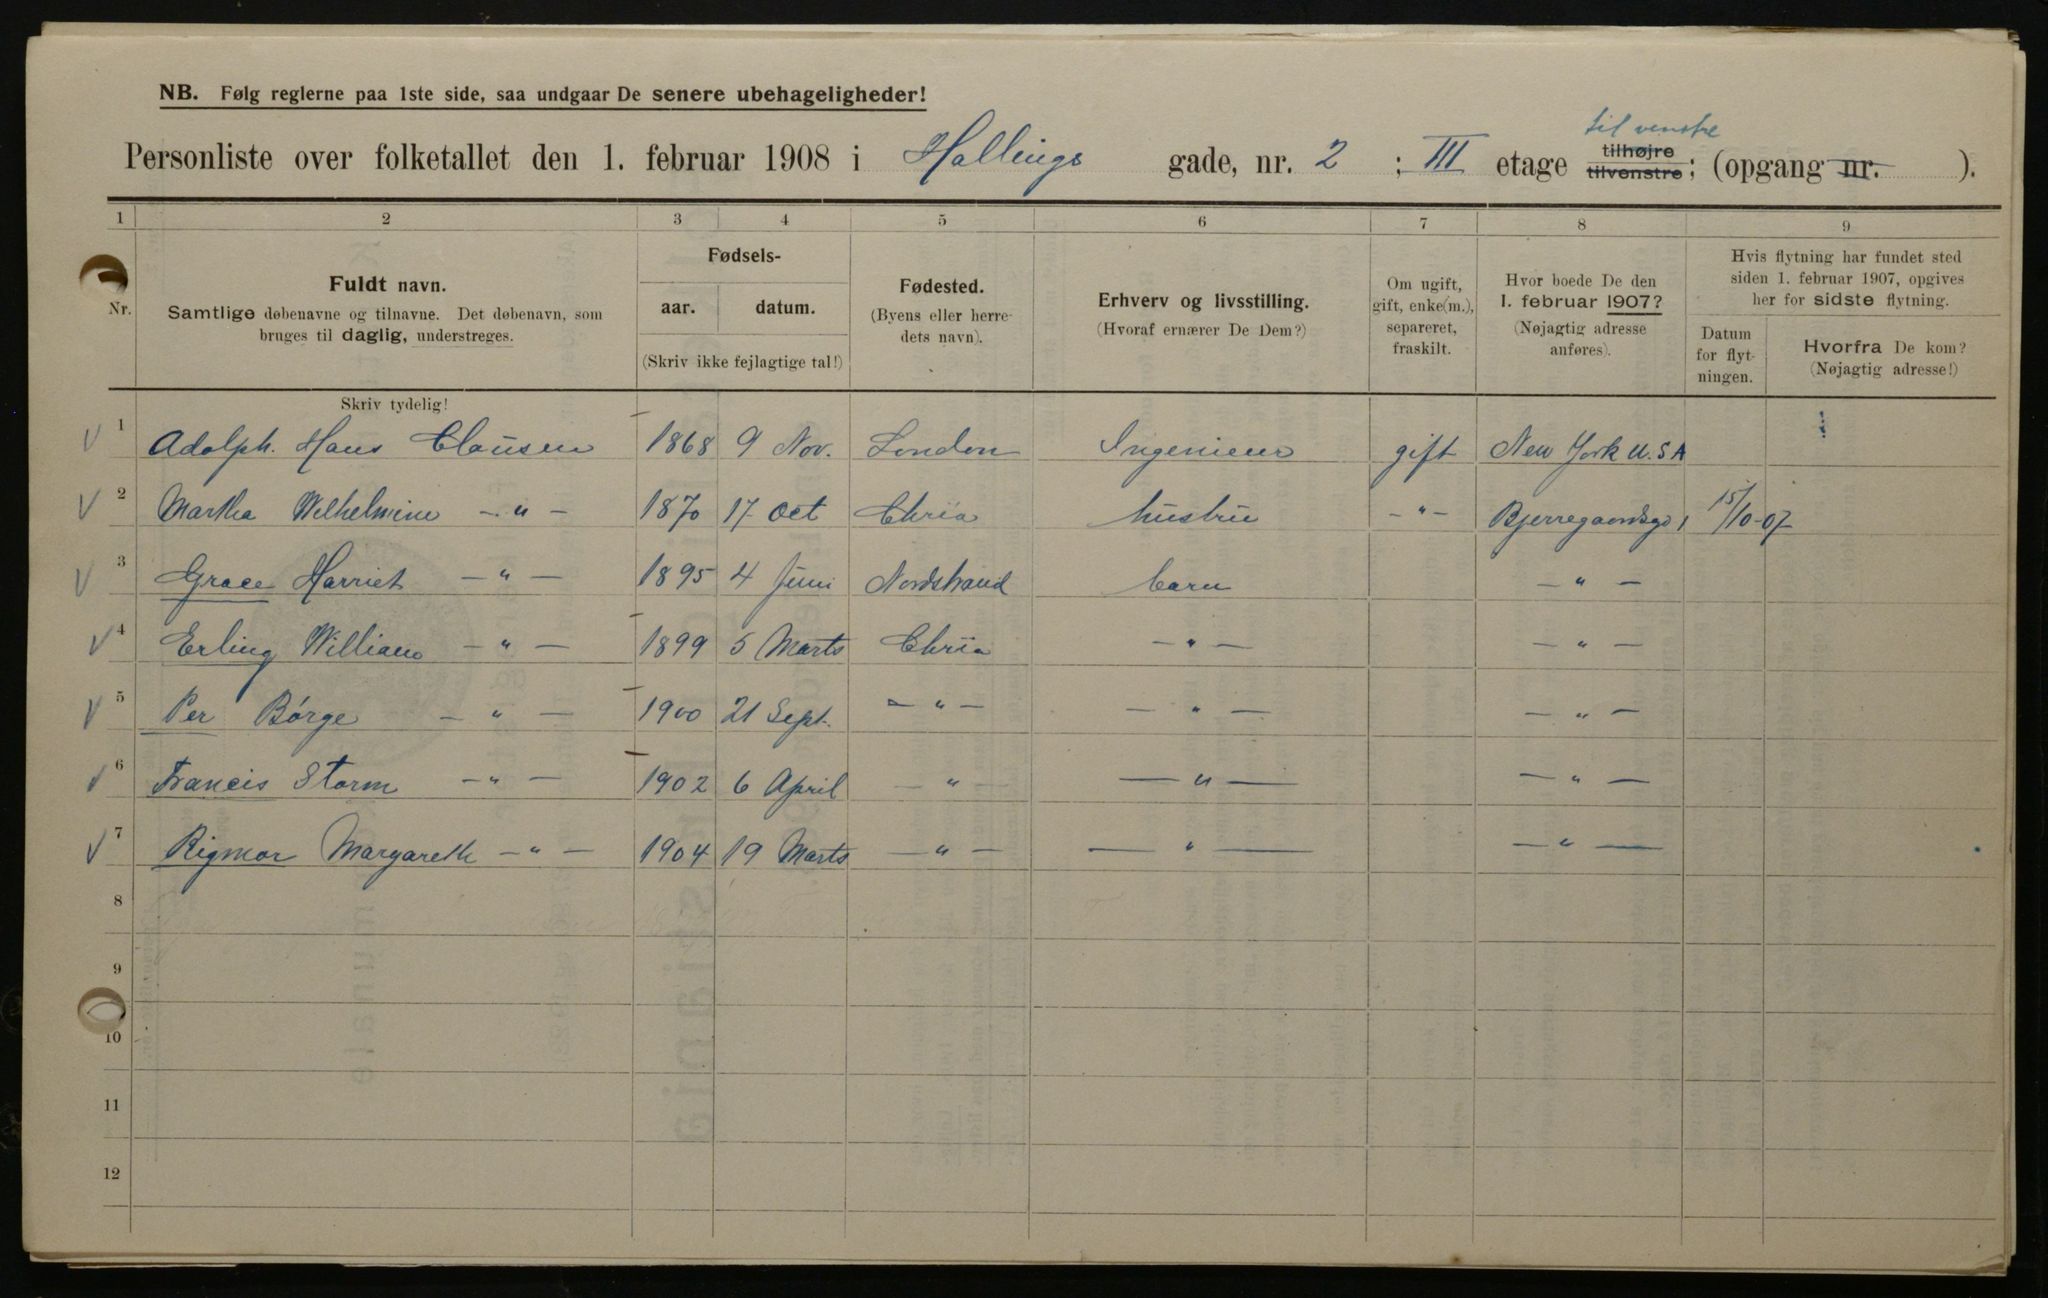 NB. Følg reglerne paa 1ste side, saa undgaar De senere ubehageligheder!
til venstre
Personliste over folketallet den 1. februar 1908 i Hallings gade, nr. 2 ; III etage tilhøjre tilvenstre; (opgang nr. ).
1 2 3 4 5 6 7 8 9
Nr.
Fuldt navn.
Samtlige døbenavne og tilnavne. Det døbenavn, som
bruges til daglig, understreges.
Fødsels-
aar. datum.
(Skriv ikke fejlagtige tal!)
Fødested.
(Byens eller herre-
dets navn).
Erhverv og livsstilling.
(Hvoraf ernærer De Dem?)
Om ugift,
gift, enke(m.),
separeret,
fraskilt.
Hvor boede De den
1. februar 1907?
(Nøjagtig adresse
anføres).
Hvis flytning har fundet sted
siden 1. februar 1907, opgives
her for sidste flytning.
Datum
for flyt-
ningen.
Hvorfra De kom?
(Nøjagtig adresse!)
Skriv tydelig!
1 Adolph. Hans Clausen 1868 9 Nov. London Ingeniør gift New York U.S A
2 Martha Wilhelmine — " — 1870 17 Oct Chria hustru — " — Bjerregaardsgd 1 15/10-07
3 Grace Harriet — " — 1895 4 Juni Nordstrand barn — " —
4 Erling William — " — 1899 5 Marts Chria — " — — " —
5 Per Børge — " — 1900 21 Sept. — " — — " — — " —
6 Francis Storm — " — 1902 6 April — " — — " — — " —
7 Rigmor Margareth — " — 1904 19 Marts — " — — " — — " —
8
9
10
11
12